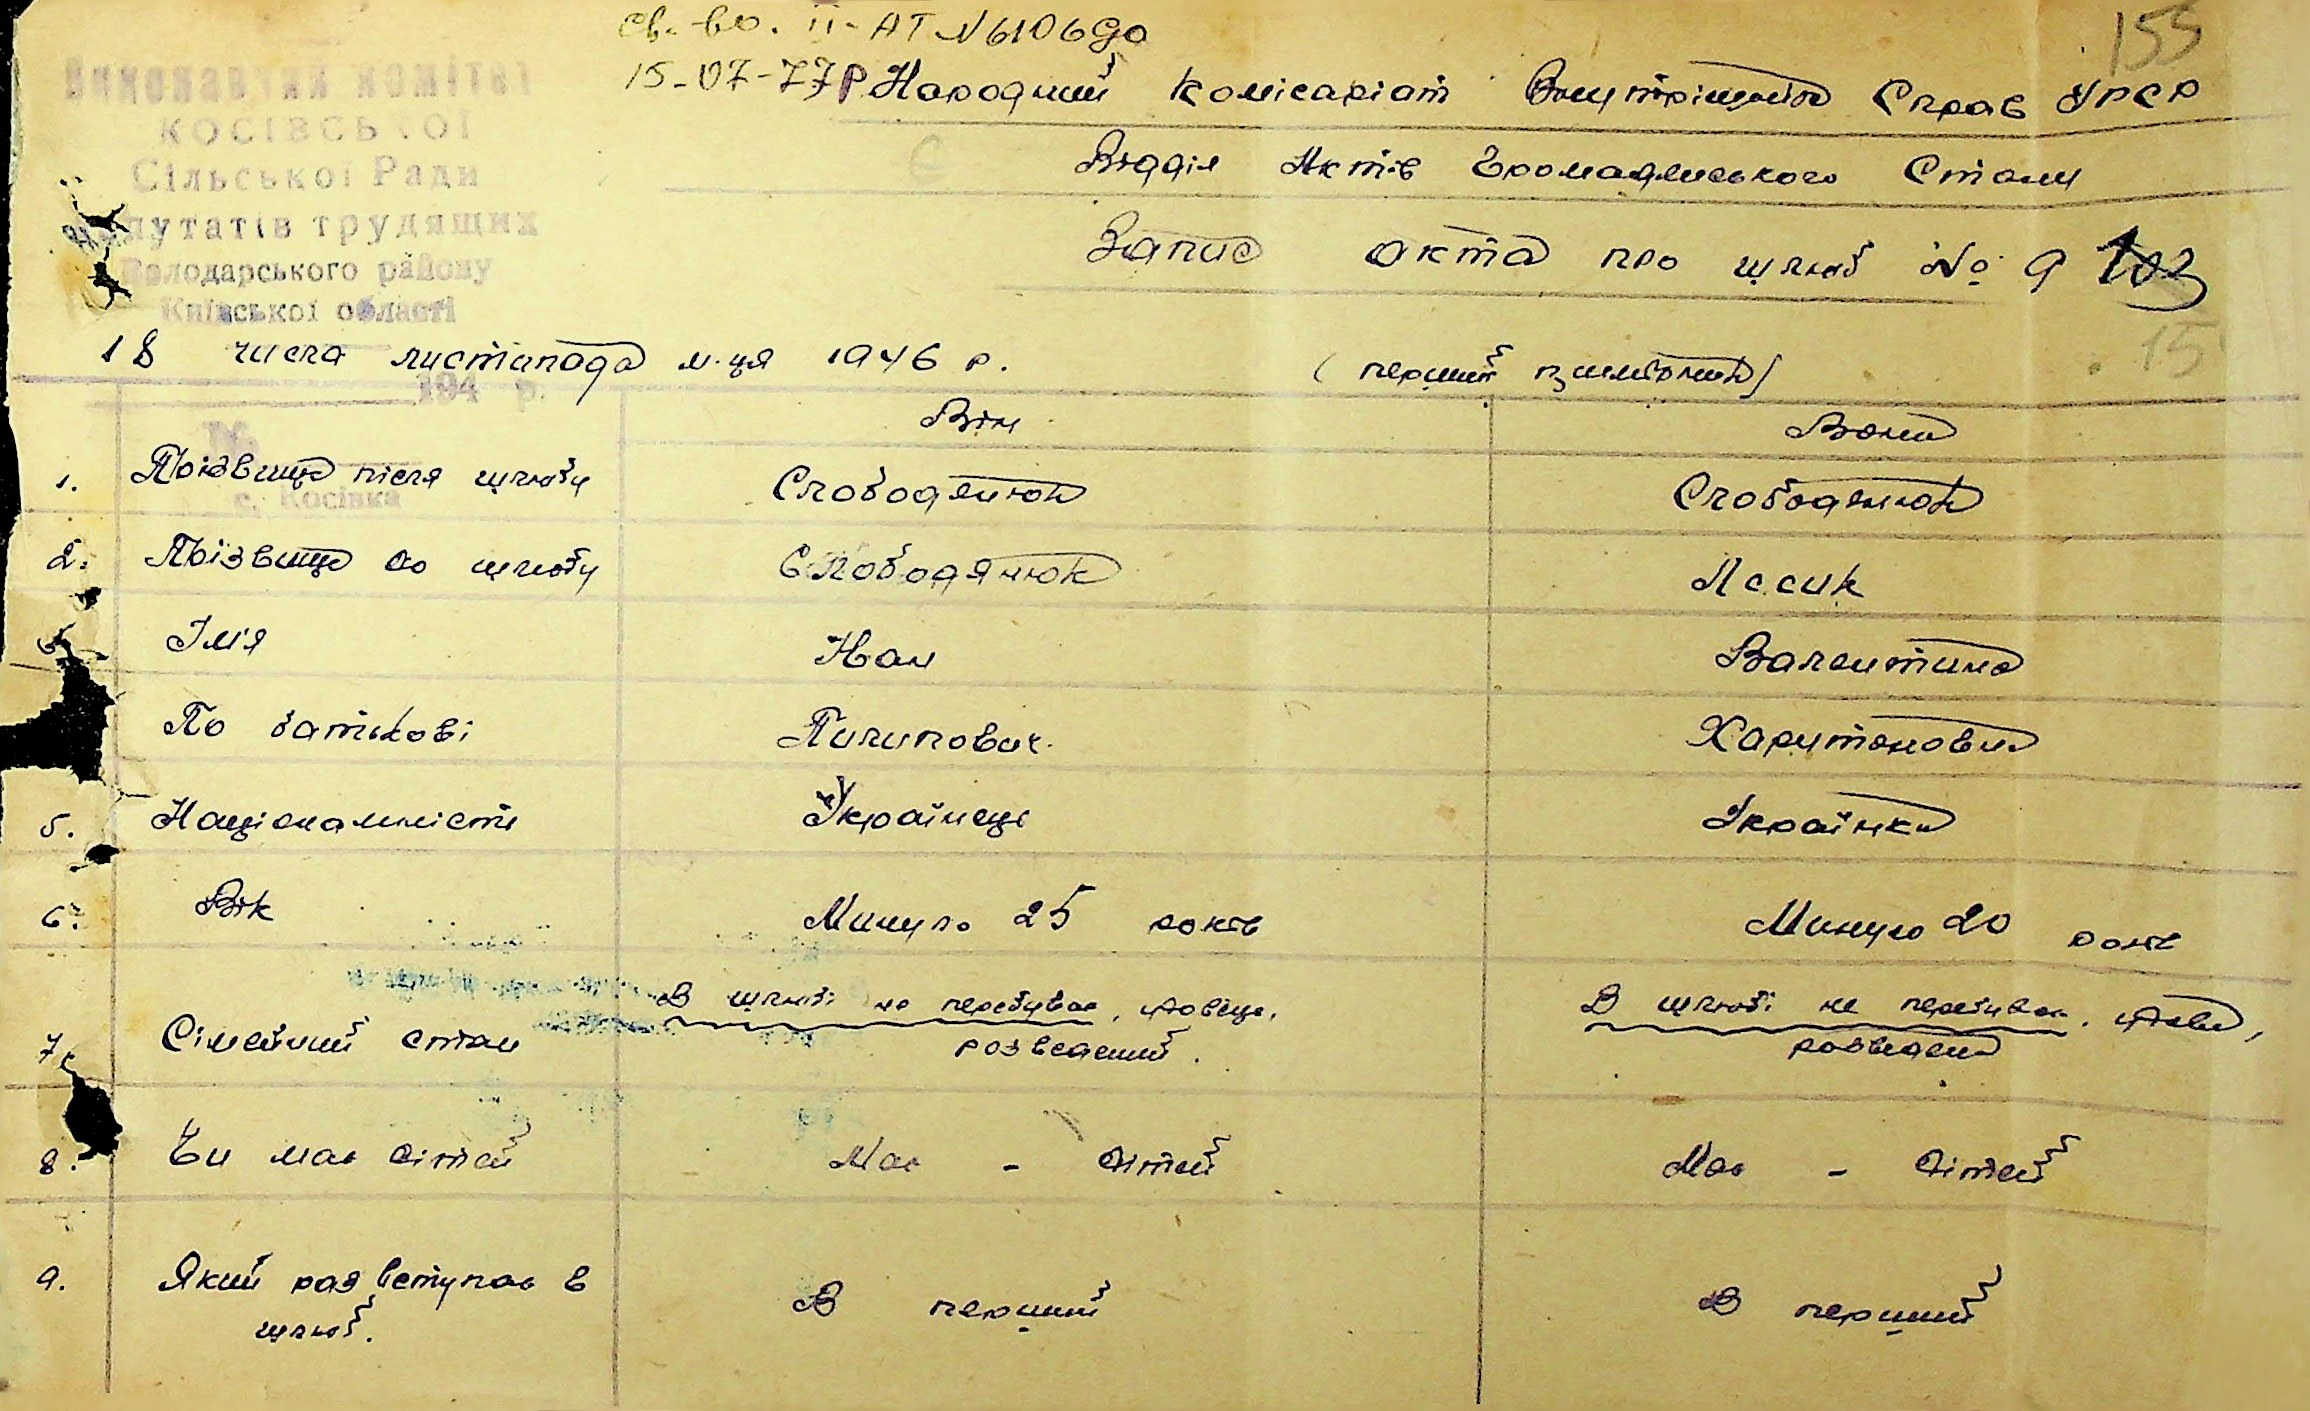 св-во. II-АТ N610690
15-07-77р
155
Народний Комісаріат Внутрішніх Справ УРСР
Відділ Актів Громадянського Стану
Запис акта про шлюб № 9 102
Виконавчий комітет
КОСІВСЬКОЇ
Сільської Ради
депутатів трудящих
Володарського району
Київської області
194 р.
№
с. Косівка
18 числа листопада м-ця 1946 р. (перший примірник)
15
Він Вона
1. Прізвище після шлюбу Слободянюк Слободянюк
2. Прізвище до шлюбу Слободянюк Лесик
Ім'я Іван Валентина
По батькові Пилипович Харитоновна
5. Національність Українець Українка
6. Вік Минуло 25 років Минуло 20 років
7. Сімейний стан В шлюбі не перебував, вдовець, розведений. В шлюбі не перебувала, вдова, розведена
8. Чи має дітей Має - дітей Має - дітей
9. Який раз вступає в шлюб. В перший В перший